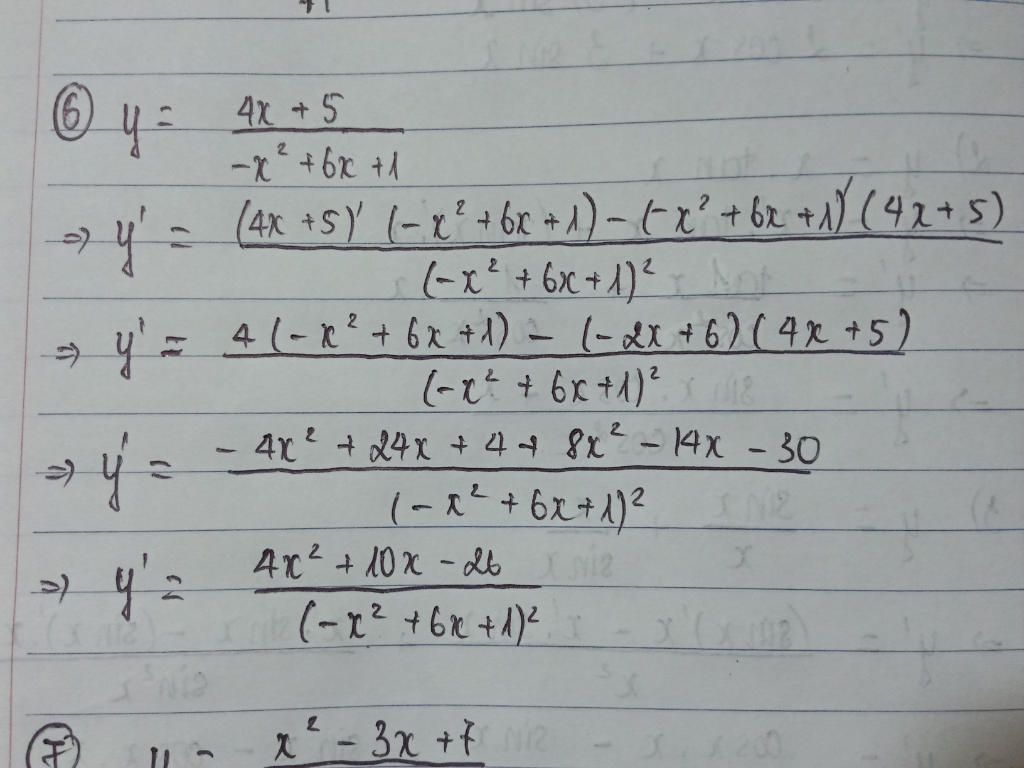 ⑥ y = (4x + 5) / (-x² + 6x + 1)
⇒ y' = ((4x + 5)' (-x² + 6x + 1) - (-x² + 6x + 1)' (4x + 5)) / (-x² + 6x + 1)²
⇒ y' = (4(-x² + 6x + 1) - (-2x + 6)(4x + 5)) / (-x² + 6x + 1)²
⇒ y' = (-4x² + 24x + 4 + 8x² - 14x - 30) / (-x² + 6x + 1)²
⇒ y' = (4x² + 10x - 26) / (-x² + 6x + 1)²
⑦ y = x² - 3x + 7